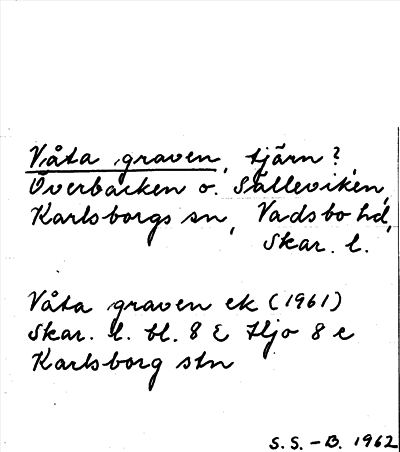 Våta graven, tjärn?,
Överbacken o. Sälleviken,
Karlsborgs sn, Vadsbo hd,
Skar. l.
Våta graven ek (1961)
Skar. l. bl. 8 E Hjo 8 e
Karlsborg stn
S.S.-B. 1962